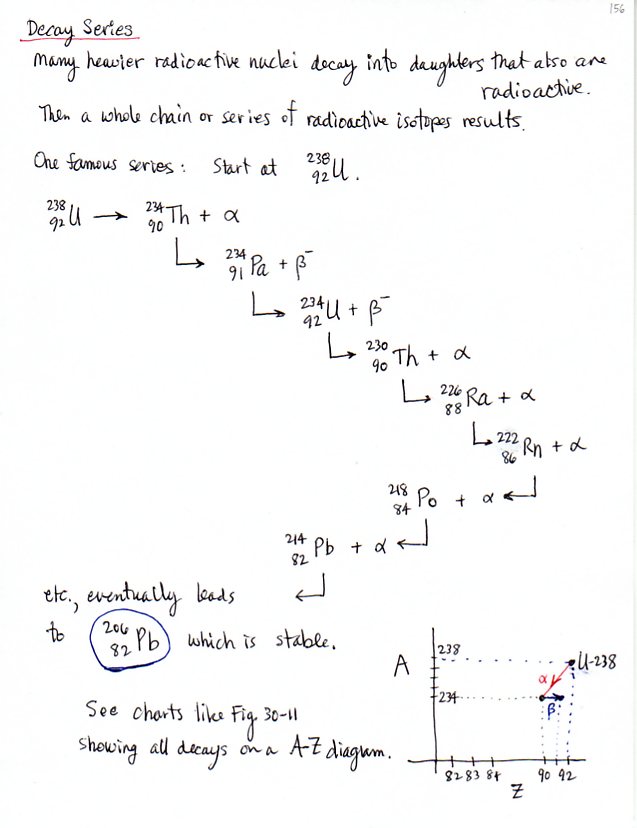 156
Decay Series
Many heavier radioactive nuclei decay into daughters that also are
radioactive.
Then a whole chain or series of radioactive isotopes results.
One famous series: Start at ²³⁸₉₂U.
²³⁸₉₂U → ²³⁴₉₀Th + α
↳ ²³⁴₉₁Pa + β⁻
↳ ²³⁴₉₂U + β⁻
↳ ²³⁰₉₀Th + α
↳ ²²⁶₈₈Ra + α
↳ ²²²₈₆Rn + α
²¹⁸₈₄Po + α ↵
²¹⁴₈₂Pb + α ↵
etc., eventually leads ↵
to ²⁰⁶₈₂Pb which is stable.
See charts like Fig 30-11
showing all decays on a A-Z diagram.
A
238
U-238
α
234
β
82 83 84 90 92
Z